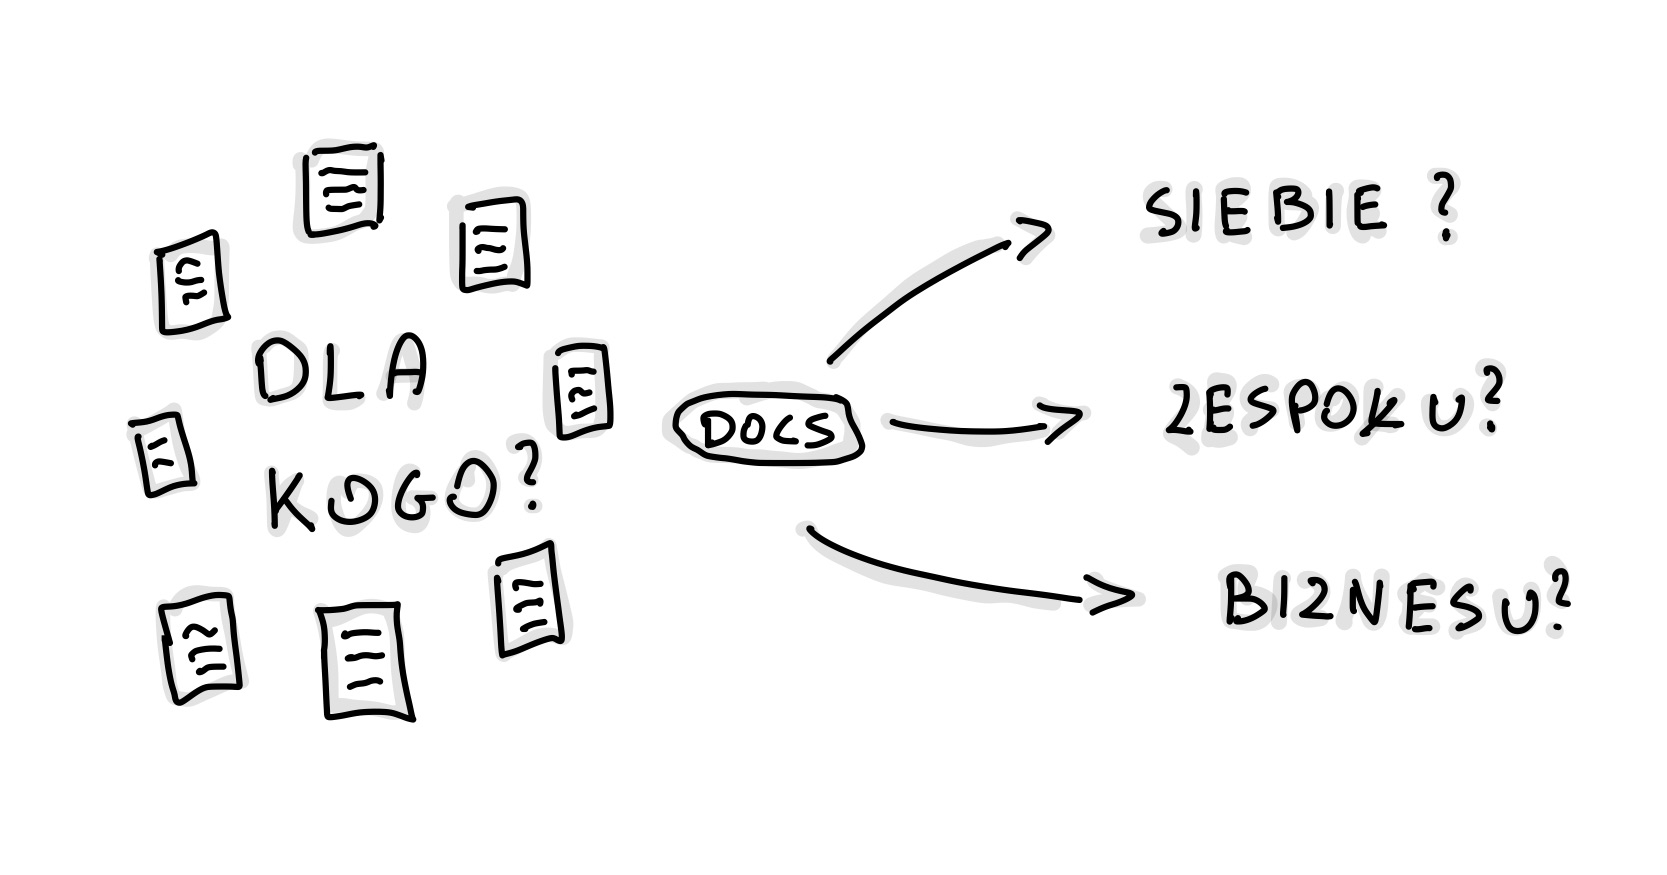 DLA
KOGO?
DOCS
SIEBIE ?
ZESPOKU?
BIZNESU?